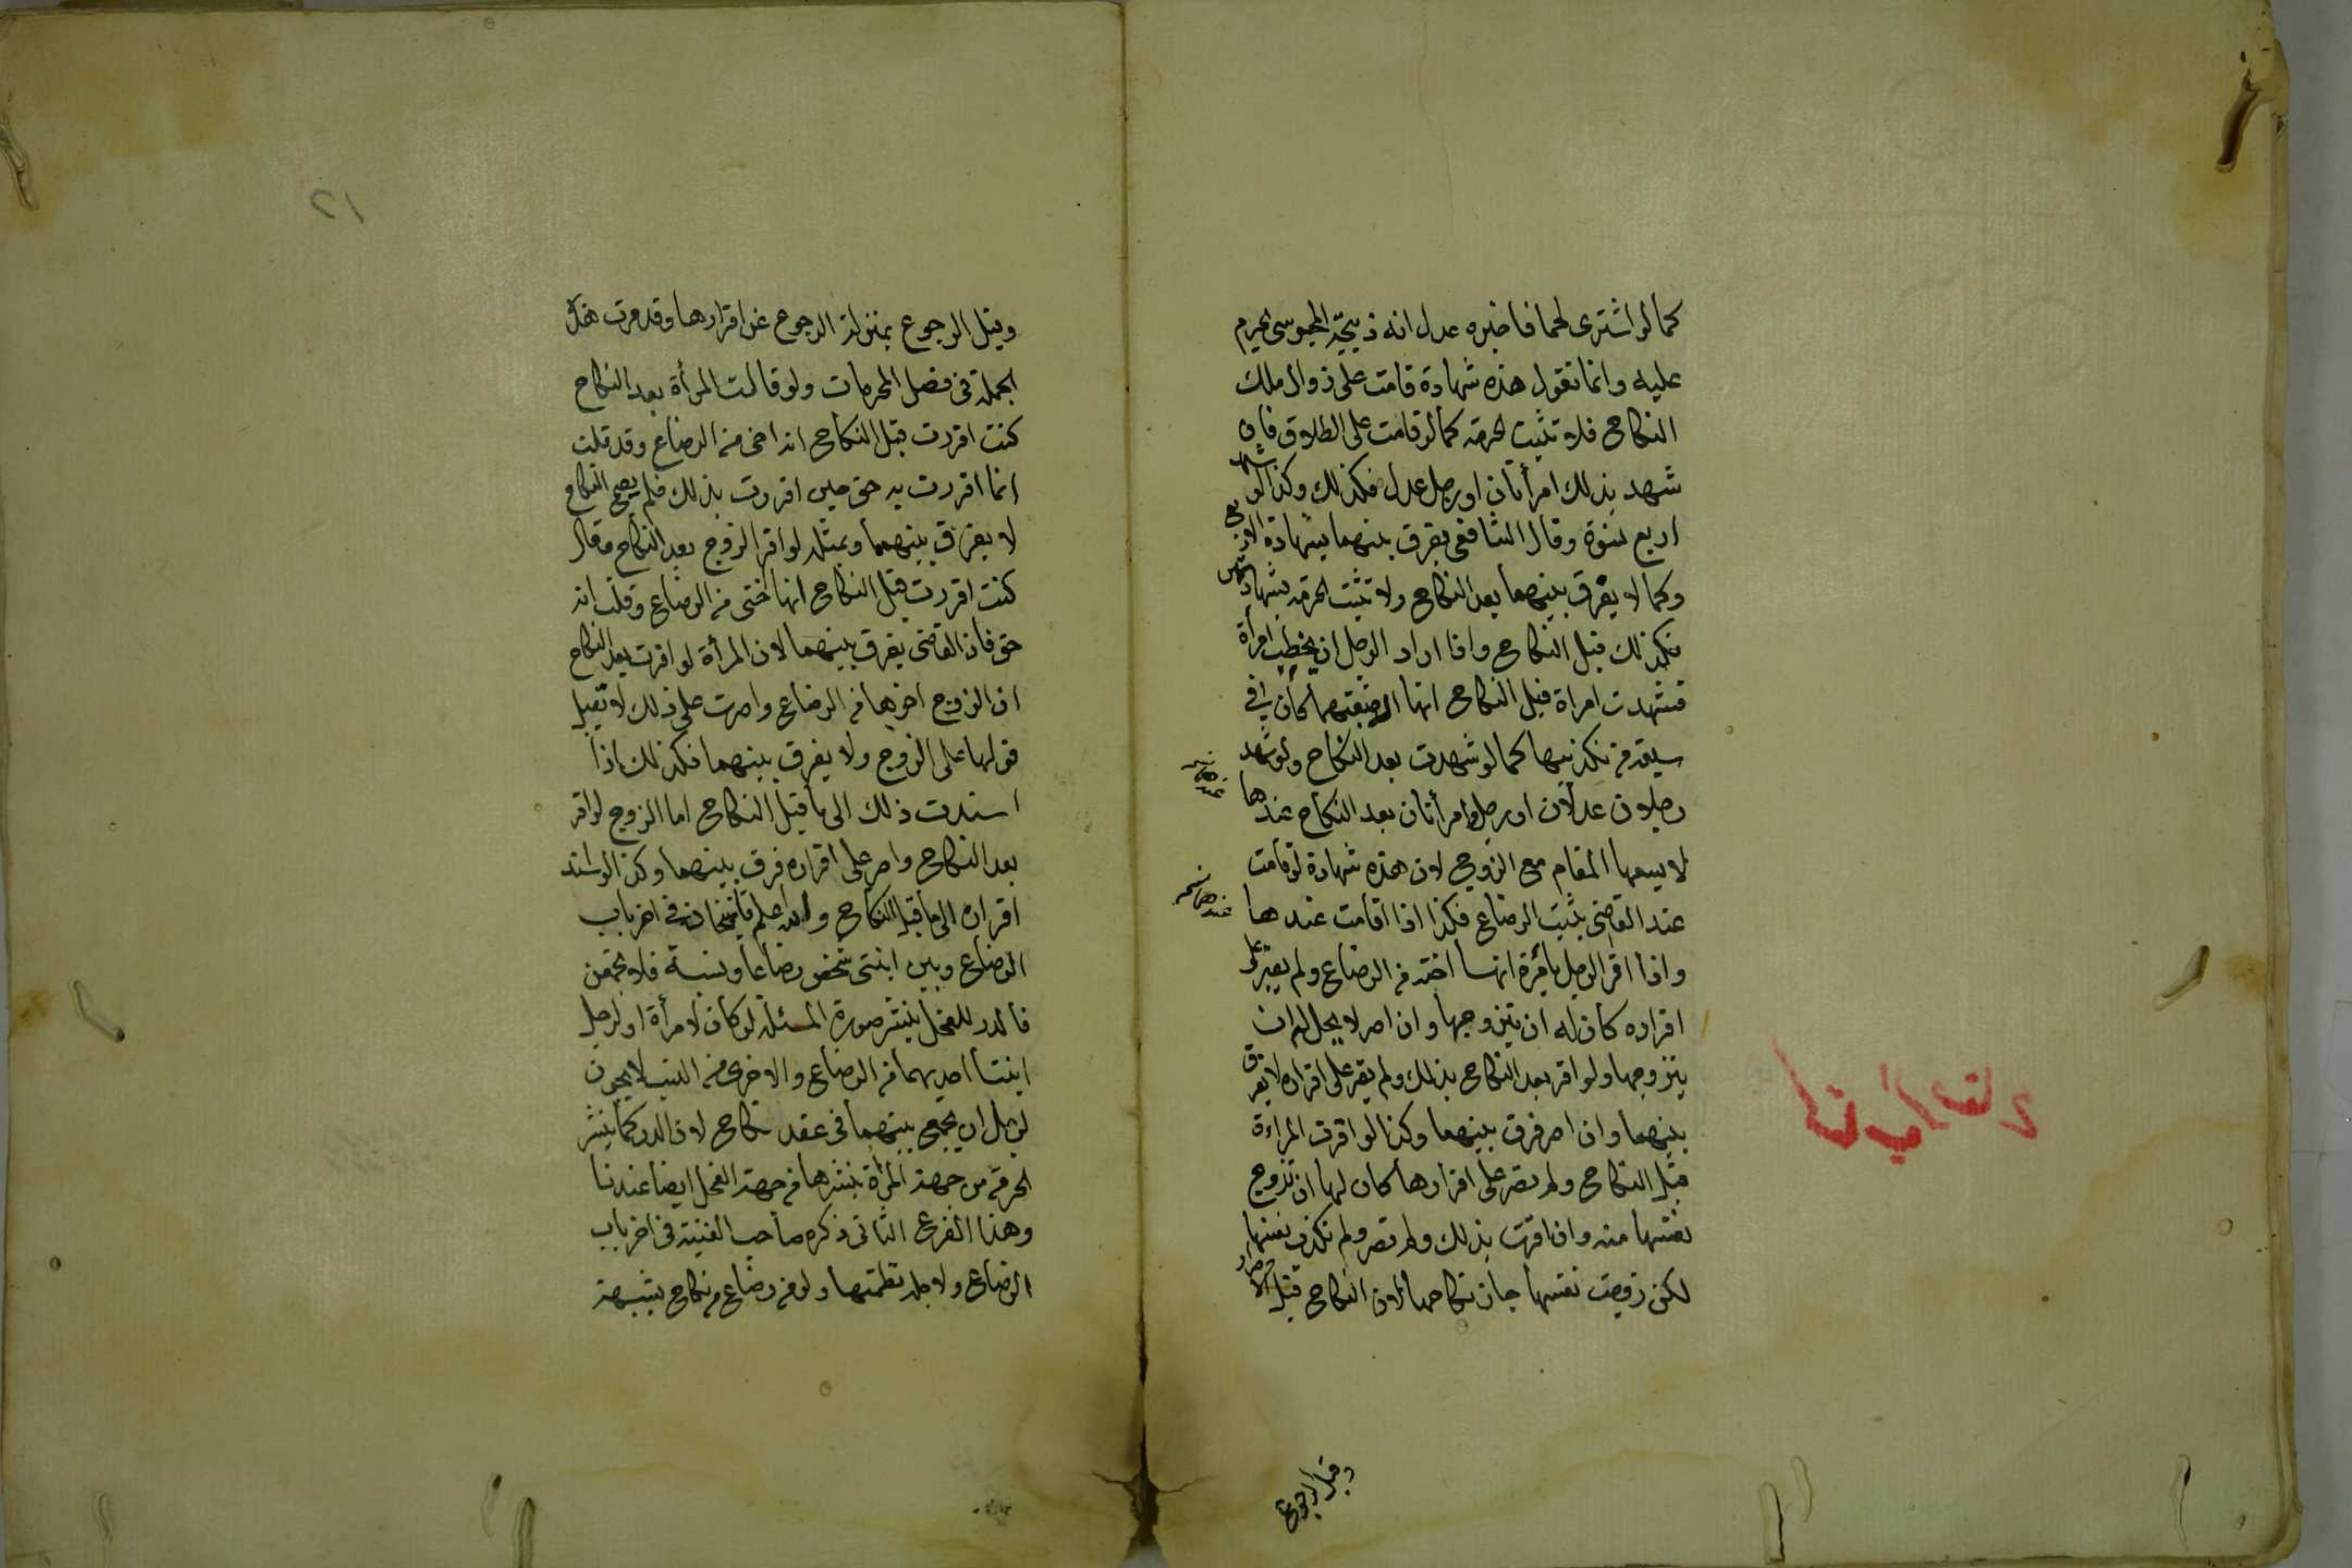 كما لو اشترى لحما فاخبره عدل انه ذبيحة المجوسى يحرم
عليه وانما نقول هذه شهادة قامت على زوال ملك
النكاح فلا تثبت الحرمة كما لو قامت على الطلاق فان
شهد بذلك امرأتان او رجل عدل فكذلك وكذا لو شهد
اربع نسوة وقال الشافعى يفرق بينهما بشهادة الاربع
وكما لا يفرق بينهما بعد النكاح ولا تثبت الحرمة بشهادتهن
فكذلك قبل النكاح واذا اراد الرجل ان يخطب امرأة
فشهدت امراة قبل النكاح انها ارضعتهما كان فى
سعة من تكذيبها كما لو شهدت بعد النكاح ولو شهد
رجلان عدلان او رجل وامرأتان بعد النكاح عندها
لا يسعها المقام مع الزوج لان هذه شهادة لو قامت
عند القاضى يثبت الرضاع فكذا اذا اقامت عندها
واذا اقر الرجل بامرة انها اخته من الرضاع ولم يصر على
اقراره كان له ان يتزوجها وان اصر لا يحل له ان
يتزوجها ولو اقر بعد النكاح بذلك ولم يصر على اقراره لا يفرق
بينهما وان اصر فرق بينهما وكذا لو اقرت المراءة
قبل النكاح ولم تصر على اقرارها كان لها ان تزوج
نفسها منه وان اقرت بذلك ولم تصر ولم تكذب نفسها
لكن زوجت نفسها جاز نكاحها لان النكاح قبل الاصرار
وقبل الرجوع
١٢
وقبل الرجوع بمنزلة الرجوع عن اقرارها وقد مرت هذه
الجملة فى فصل المحرمات ولو قالت المرأة بعد النكاح
كنت اقررت قبل النكاح انه اخى من الرضاع وقد قلت
انما اقررت به حق حين اقررت بذلك فلم يصح النكاح
لا يفرق بينهما وبمثله لو اقر الزوج بعد النكاح وقال
كنت اقررت قبل النكاح انها اختى من الرضاع وقلت انه
حق فان القاضى يفرق بينهما لان المرأة لو اقرت بعد النكاح
ان الزوج اخوها من الرضاع واصرت على ذلك لا تقبل
قولها على الزوج ولا يفرق بينهما فكذلك اذا
اسندت ذلك الى ما قبل النكاح اما الزوج لو اقر
بعد النكاح واصر على اقراره فرق بينهما وكذا لو اسند
اقراره الى ما قبل النكاح والله اعلم قاضيخان فى اخر باب
الرضاع وبين ابنتى شخص رضاعا ونسبة فلا تجمعن
فالدر للفحل ينشر صورة المسئلة لو كان لامرأة او لرجل
ابنتا احديهما من الرضاع والاخرى من النسب لا يجوز
لرجل ان يجمع بينهما فى عقد نكاح لان الدر كما ينشر
الحرمة من جهة المرأة ينشرها من جهة الفحل ايضا عندنا
وهذا الفرع الثانى ذكره صاحب القنية فى اخر باب
الرضاع ولاجله نظمتها ولو من رضاع من نكاح بشبهة